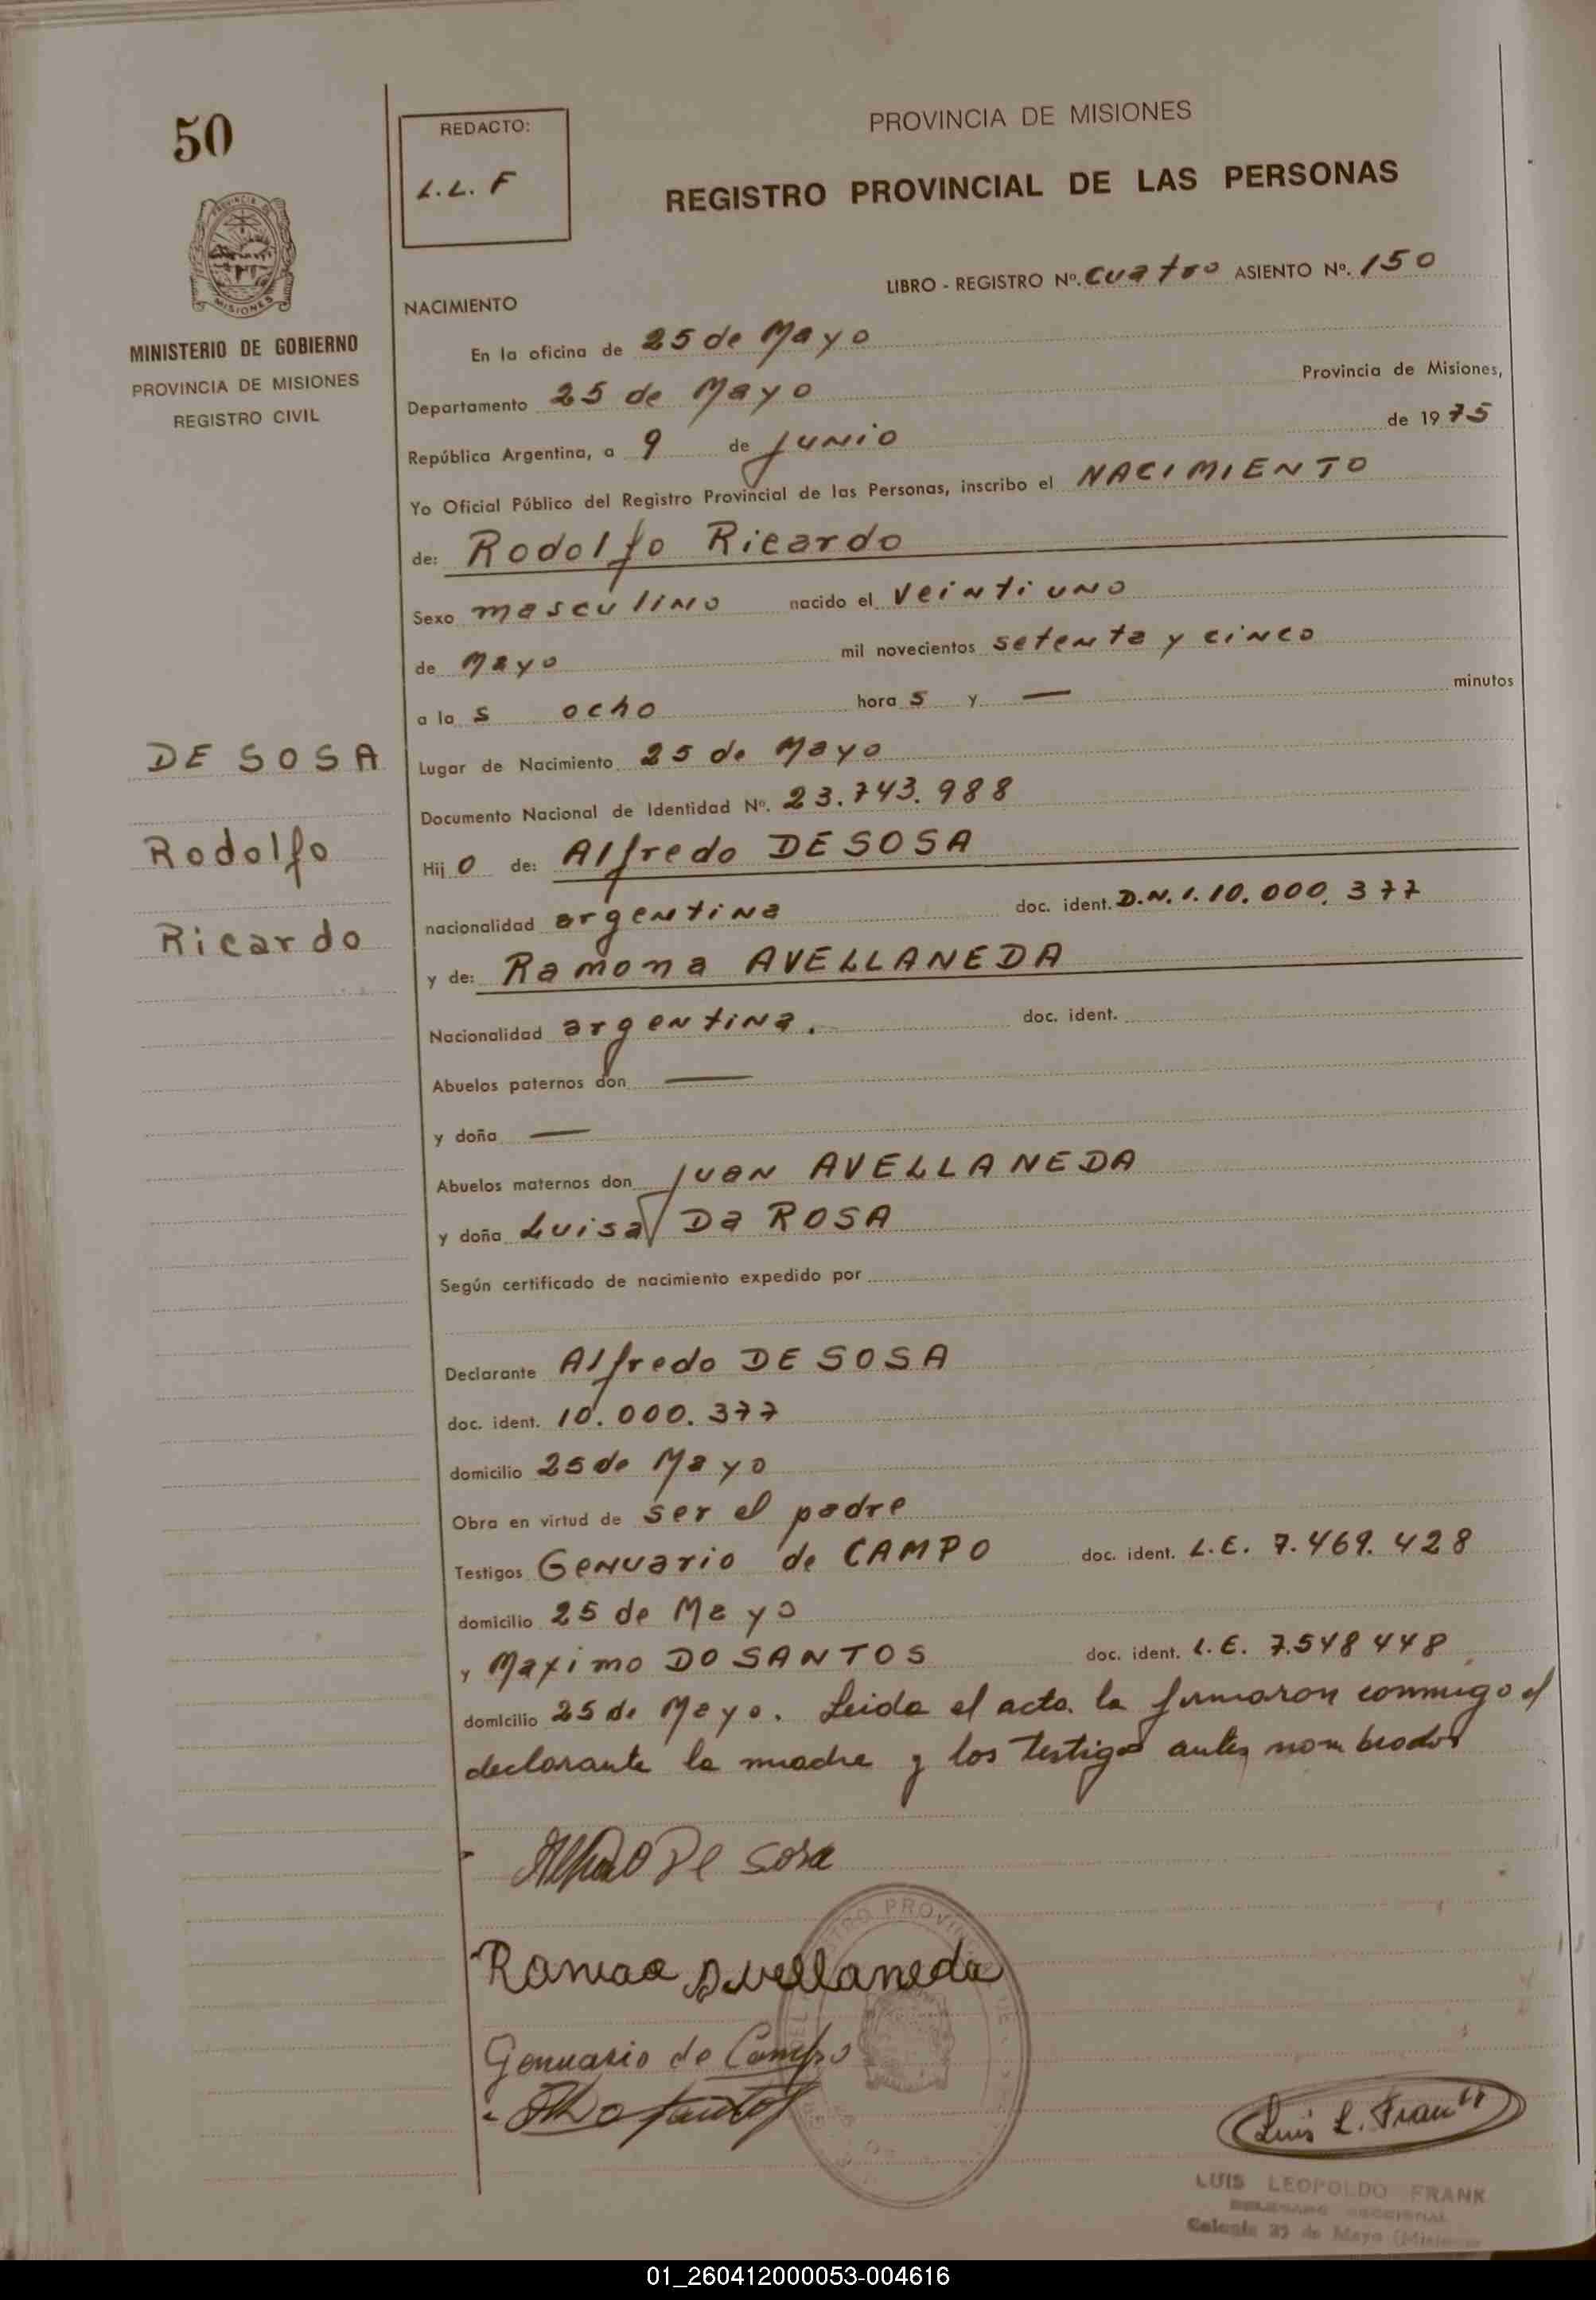 50
REDACTO:
L.L.F
PROVINCIA DE MISIONES
REGISTRO PROVINCIAL DE LAS PERSONAS
PROVINCIA DE
MISIONES
MINISTERIO DE GOBIERNO
PROVINCIA DE MISIONES
REGISTRO CIVIL
LIBRO - REGISTRO Nº. cuatro ASIENTO Nº. 150
NACIMIENTO
En la oficina de 25 de Mayo
Departamento 25 de Mayo Provincia de Misiones,
República Argentina, a 9 de junio de 1975
Yo Oficial Público del Registro Provincial de las Personas, inscribo el NACIMIENTO
de: Rodolfo Ricardo
Sexo masculino nacido el veintiuno
de Mayo mil novecientos setenta y cinco
a la s ocho hora s y — minutos
DE SOSA
Rodolfo
Ricardo
Lugar de Nacimiento 25 de Mayo
Documento Nacional de Identidad Nº. 23.743.988
Hij o de: Alfredo DE SOSA
nacionalidad argentina doc. ident. D.N.I. 10.000.377
y de: Ramona AVELLANEDA
Nacionalidad argentina. doc. ident.
Abuelos paternos don —
y doña —
Abuelos maternos don Juan AVELLANEDA
y doña Luisa Da ROSA
Según certificado de nacimiento expedido por
Declarante Alfredo DE SOSA
doc. ident. 10.000.377
domicilio 25 de Mayo
Obra en virtud de ser el padre
Testigos Genuario de CAMPO doc. ident. L.E. 7.469.428
domicilio 25 de Mayo
y Maximo DO SANTOS doc. ident. L.E. 7.548448
domicilio 25 de Mayo. Leida el acta la firmaron conmigo el
declarante la madre y los testigos antes nombrados
Alfredo De Sosa
Ramona Avellaneda
Genuario de Campo
Do Santos
Luis L. Frank
LUIS LEOPOLDO FRANK
DELEGADO SECCIONAL
Colonia 25 de Mayo
01_260412000053-004616